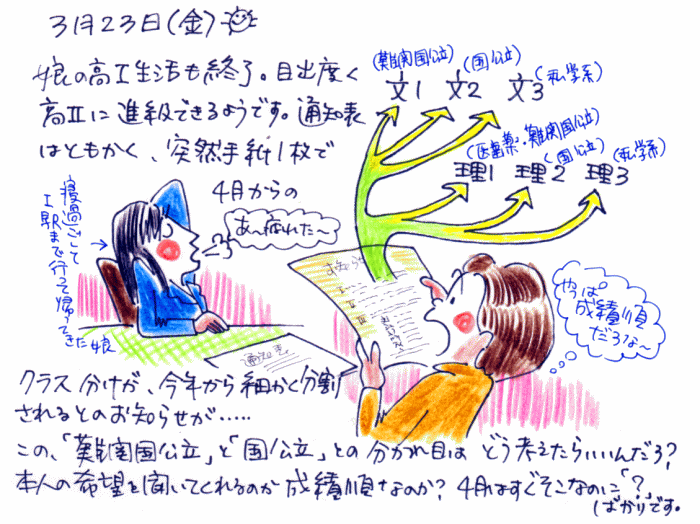 3月23日(金)
娘の高Ⅰ生活も終了。目出度く
高Ⅱに進級できるようです。通知表
はともかく、突然手紙1枚で
4月からの
(難関国公立) (国公立) (私学系)
文1 文2 文3
(医歯薬・難関国公立) (国公立) (私学系)
理1 理2 理3
寝過ごして
I駅まで行って帰ってきた娘
あ〜疲れた〜
お知らせ
通知表
やっぱ
成績順
だろな〜
クラス分けが、今年から細かく分割
されるとのお知らせが.....
この、「難関国公立」と「国公立」との分かれ目はどう考えたらいいんだろ?
本人の希望を聞いてくれるのか成績順なのか?4月はすぐそこなのに「?」
ばかりです。